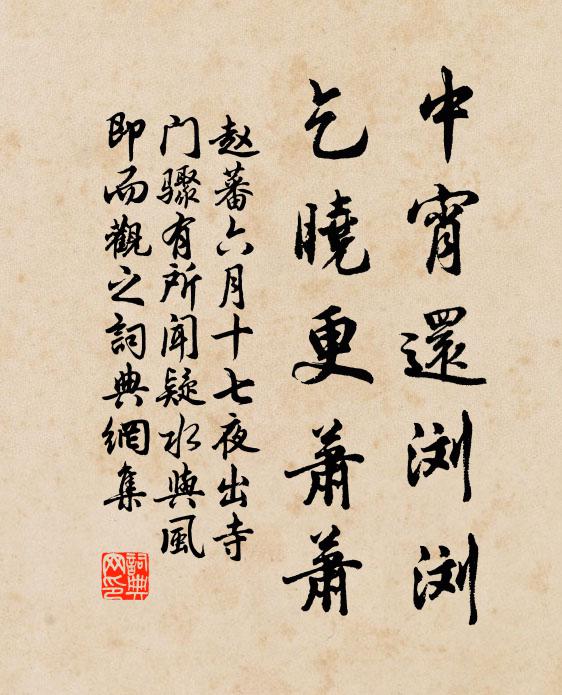 中宵還浏浏
乞曉更蕭蕭
赵蕃六月十七夜出寺
门骤有所闻疑水與風
即而觀之詞典網集
詞典
网印